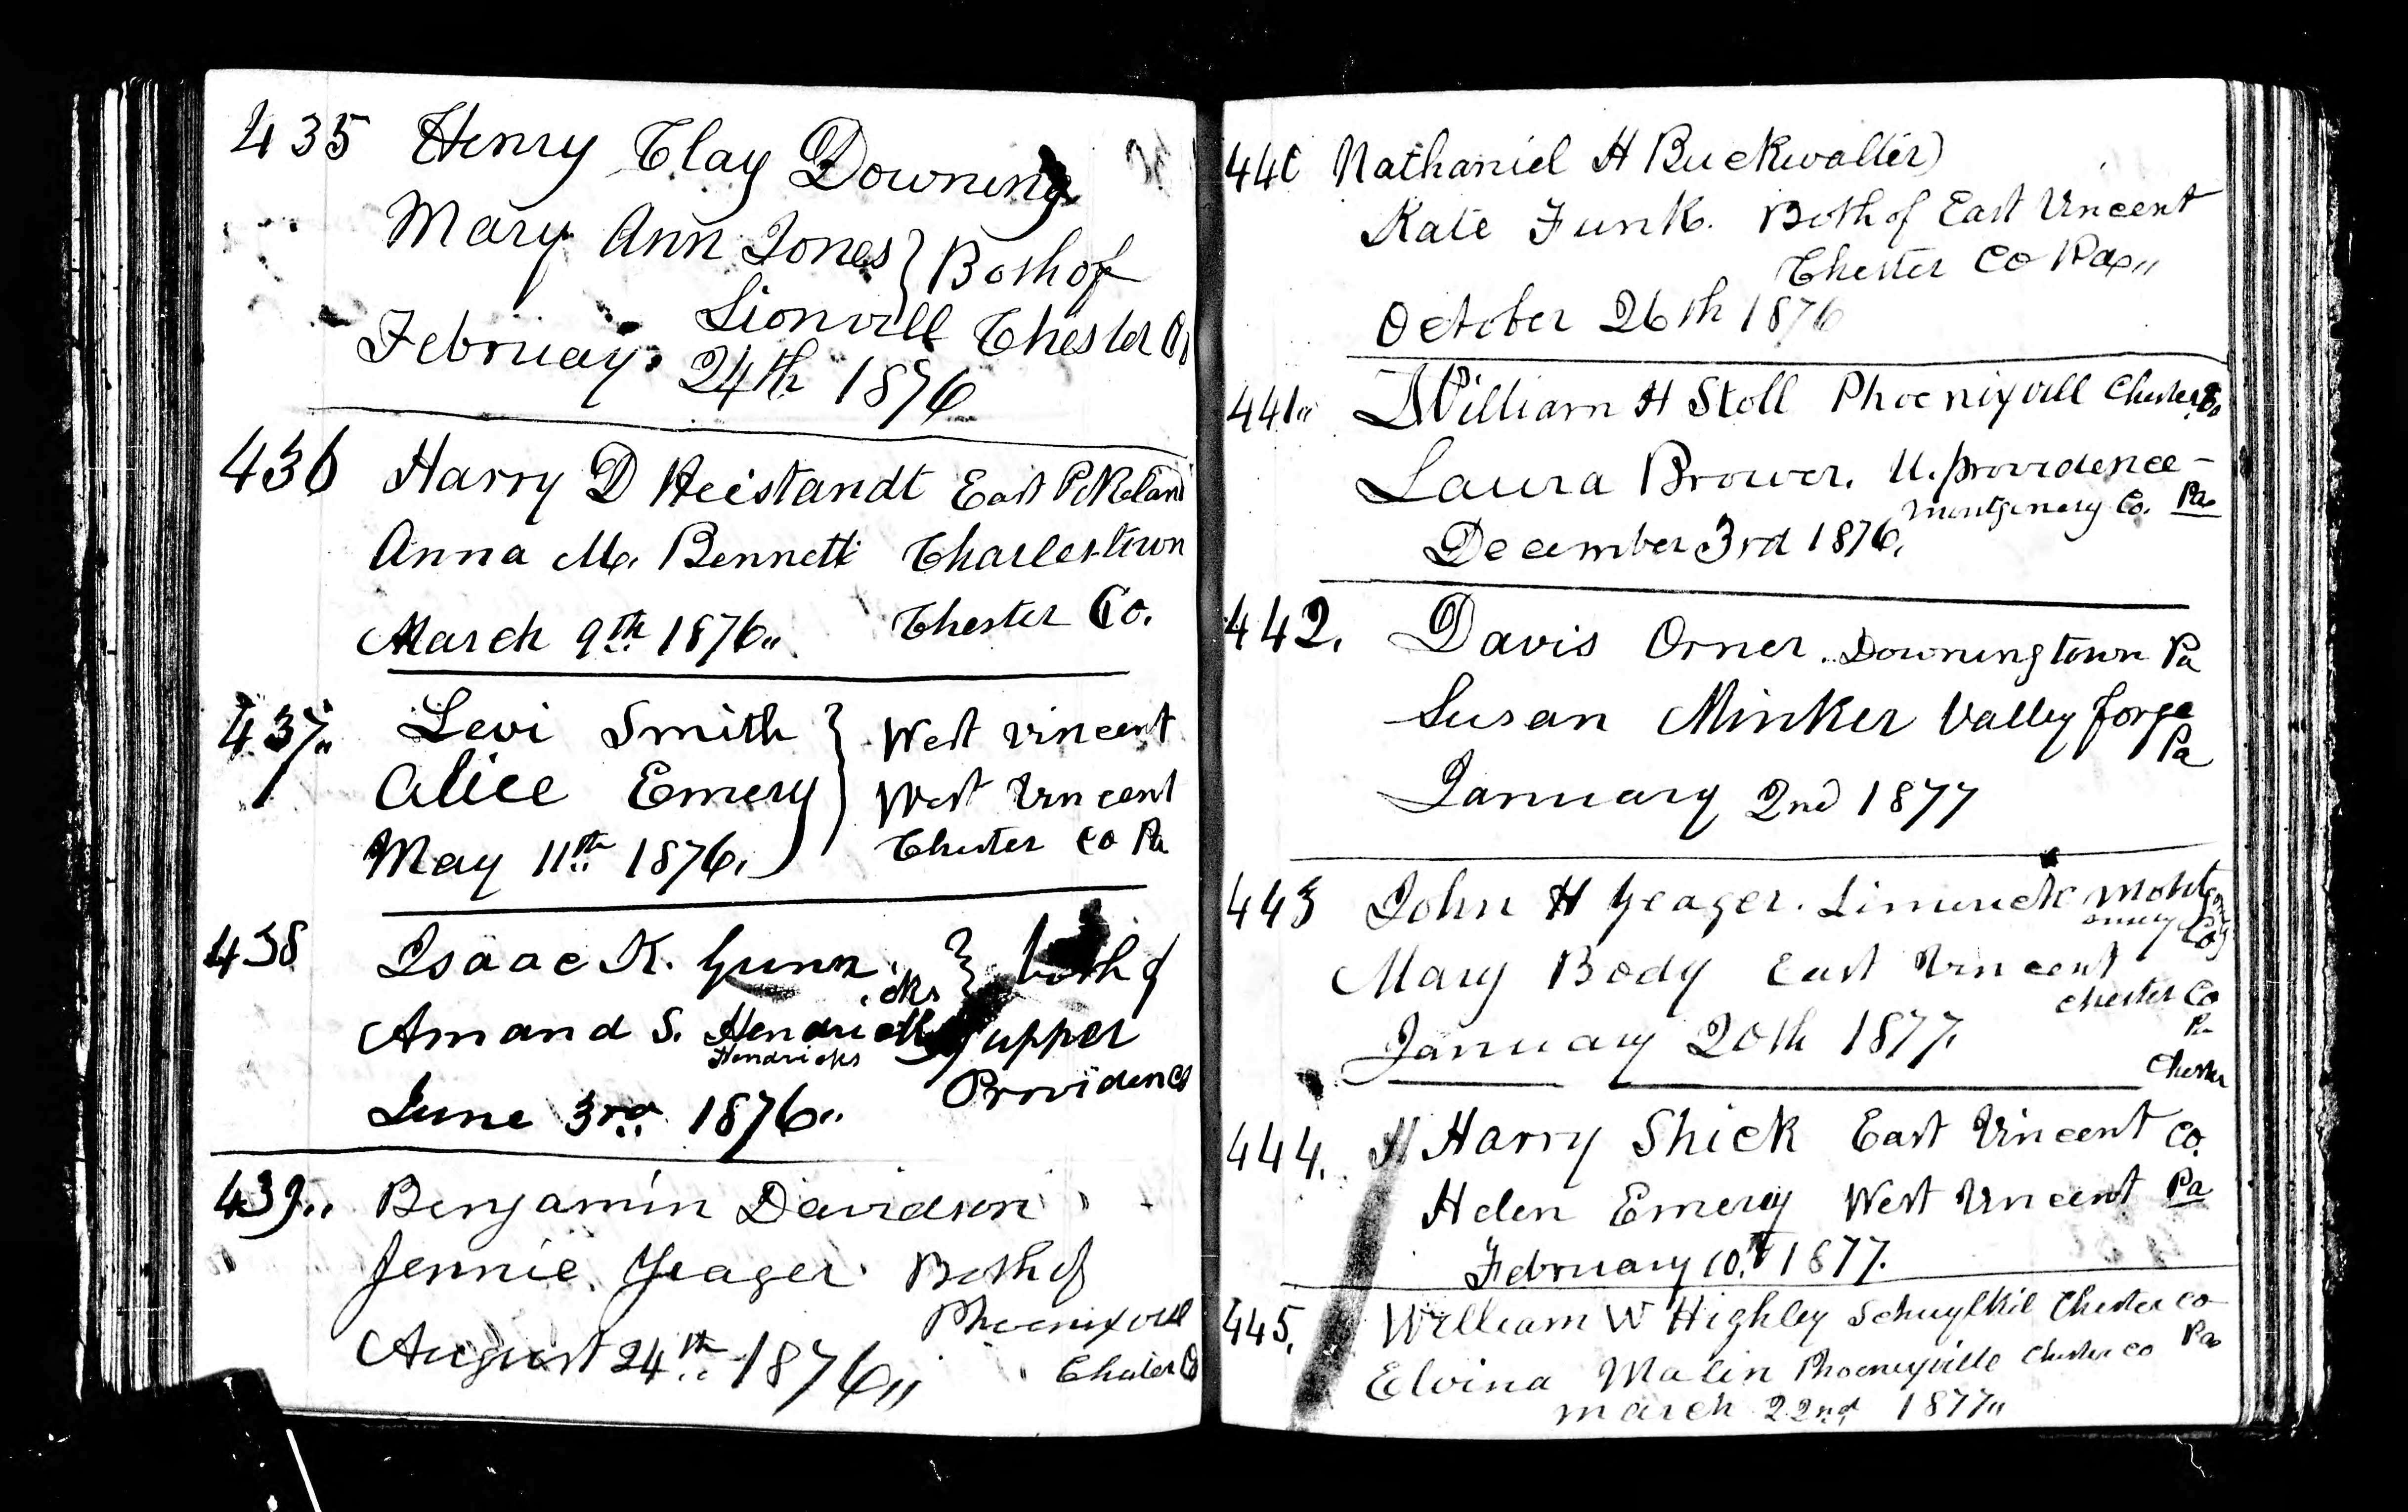 435 Henry Clay Downing
Mary Ann Jones } Both of
Lionvill Chester Co
February 24th 1876
436 Harry D Heistandt East Pikeland
Anna M. Bennett Charlestown
March 9th 1876,, Chester Co.
437,, Levi Smith } West Vincent
Alice Emery West Vincent
May 11th 1876, Chester Co Pa
438 Isaac K. Gunn } both of
cks
Amand S. Hendrick upper
Hendricks
Providence
June 3rd 1876,,
439,, Benjamin Davidson
Jennie Yeager Both of
Phoenixvill
August 24th 1876,, Chester Co
440 Nathaniel H Buckwalter
Kate Funk. Both of East Vincent
Chester Co Pa,,
October 26th 1876
441,, William H Stoll Phoenixvill Chester Co
Laura Brower. U. providence -
Montgomery Co. Pa
December 3rd 1876.
442. Davis Orner. Downingtown Pa
Susan Minker Valley forge
Pa
January 2nd 1877
443 John H Yeager. Limerick Montgomery Co
Mary Body East Vincent
Chester Co
Pa
January 20th 1877.
Chester
444. H Harry Shick East Vincent Co.
Helen Emery West Vincent Pa
February 10th 1877.
445. William W Highley Schuylkil Chester Co
Elvina Malin Phoenixville Chester Co Pa
march 22nd 1877,,